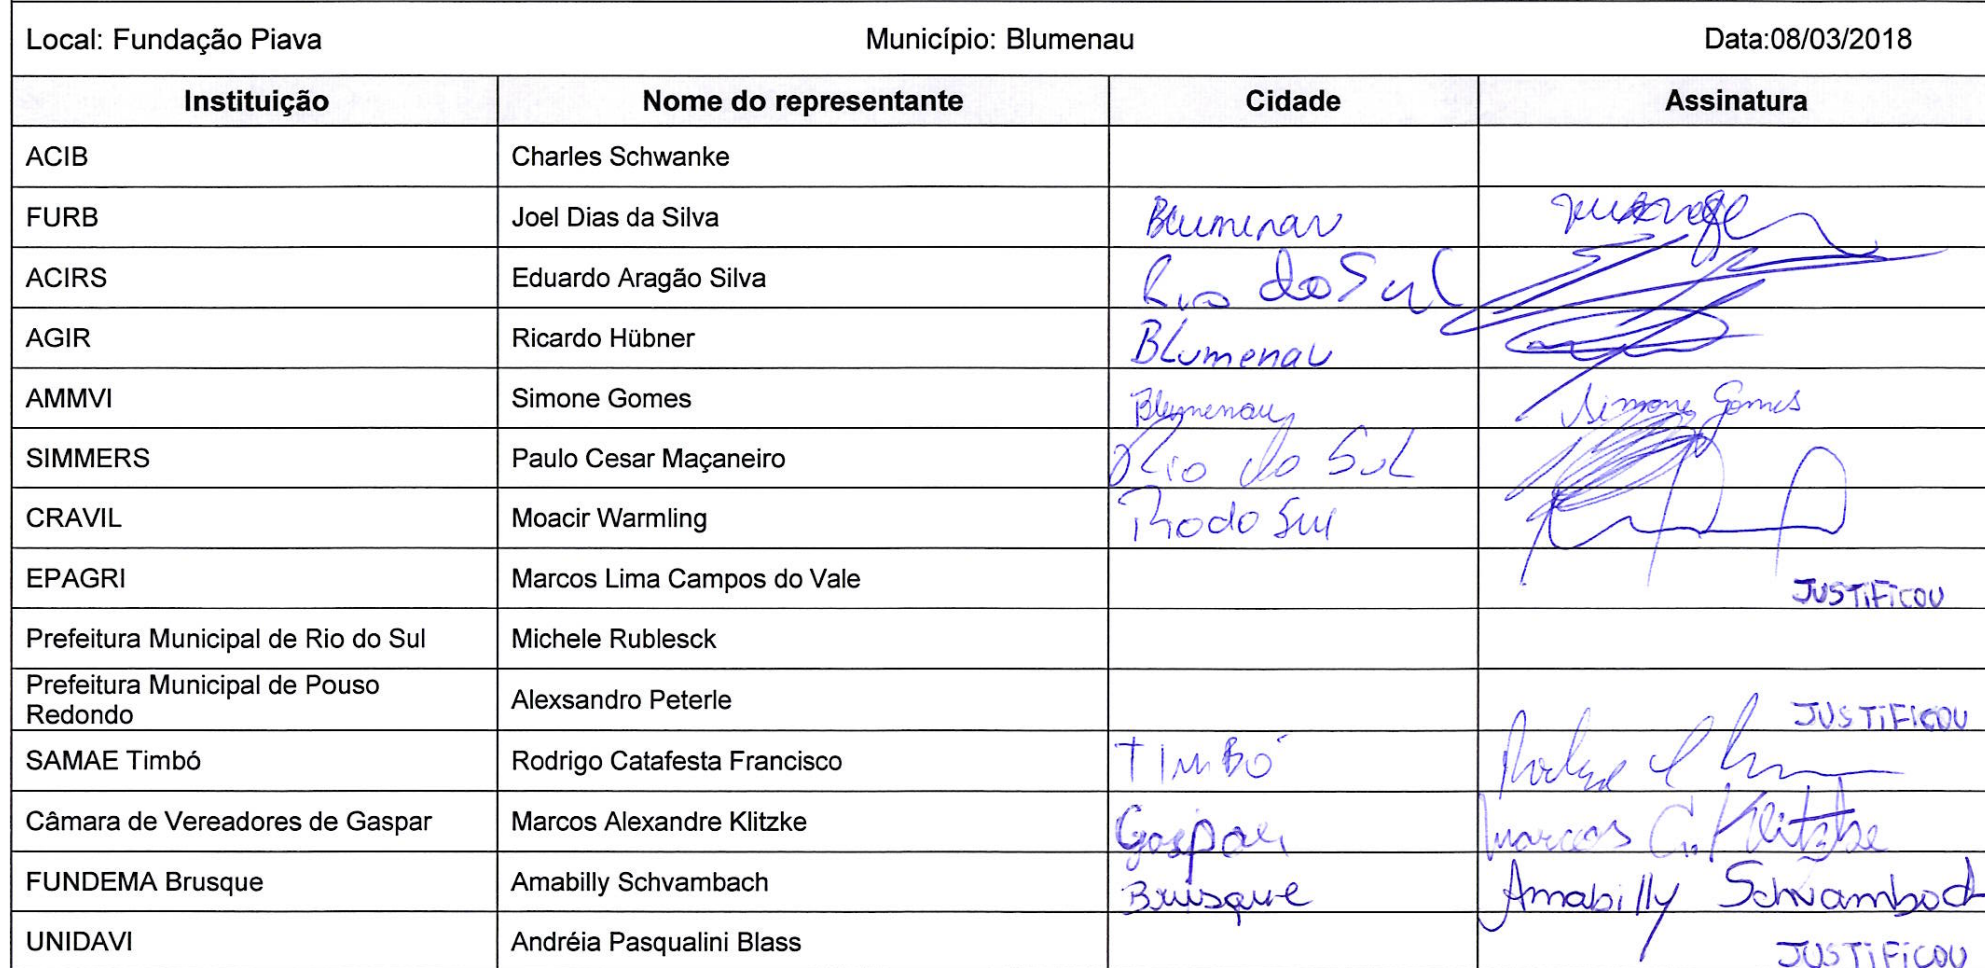 Local: Fundação Piava Município: Blumenau Data:08/03/2018
Instituição Nome do representante Cidade Assinatura
ACIB Charles Schwanke
FURB Joel Dias da Silva Blumenau
ACIRS Eduardo Aragão Silva Rio do Sul
AGIR Ricardo Hübner Blumenau
AMMVI Simone Gomes Blumenau Simone Gomes
SIMMERS Paulo Cesar Maçaneiro Rio do Sul
CRAVIL Moacir Warmling Rio do Sul
EPAGRI Marcos Lima Campos do Vale JUSTIFICOU
Prefeitura Municipal de Rio do Sul Michele Rublesck
Prefeitura Municipal de Pouso
Redondo Alexsandro Peterle JUSTIFICOU
SAMAE Timbó Rodrigo Catafesta Francisco TIMBÓ
Câmara de Vereadores de Gaspar Marcos Alexandre Klitzke Gaspar Marcos Klitzke
FUNDEMA Brusque Amabilly Schvambach Brusque Amabilly Schvambach
UNIDAVI Andréia Pasqualini Blass JUSTIFICOU